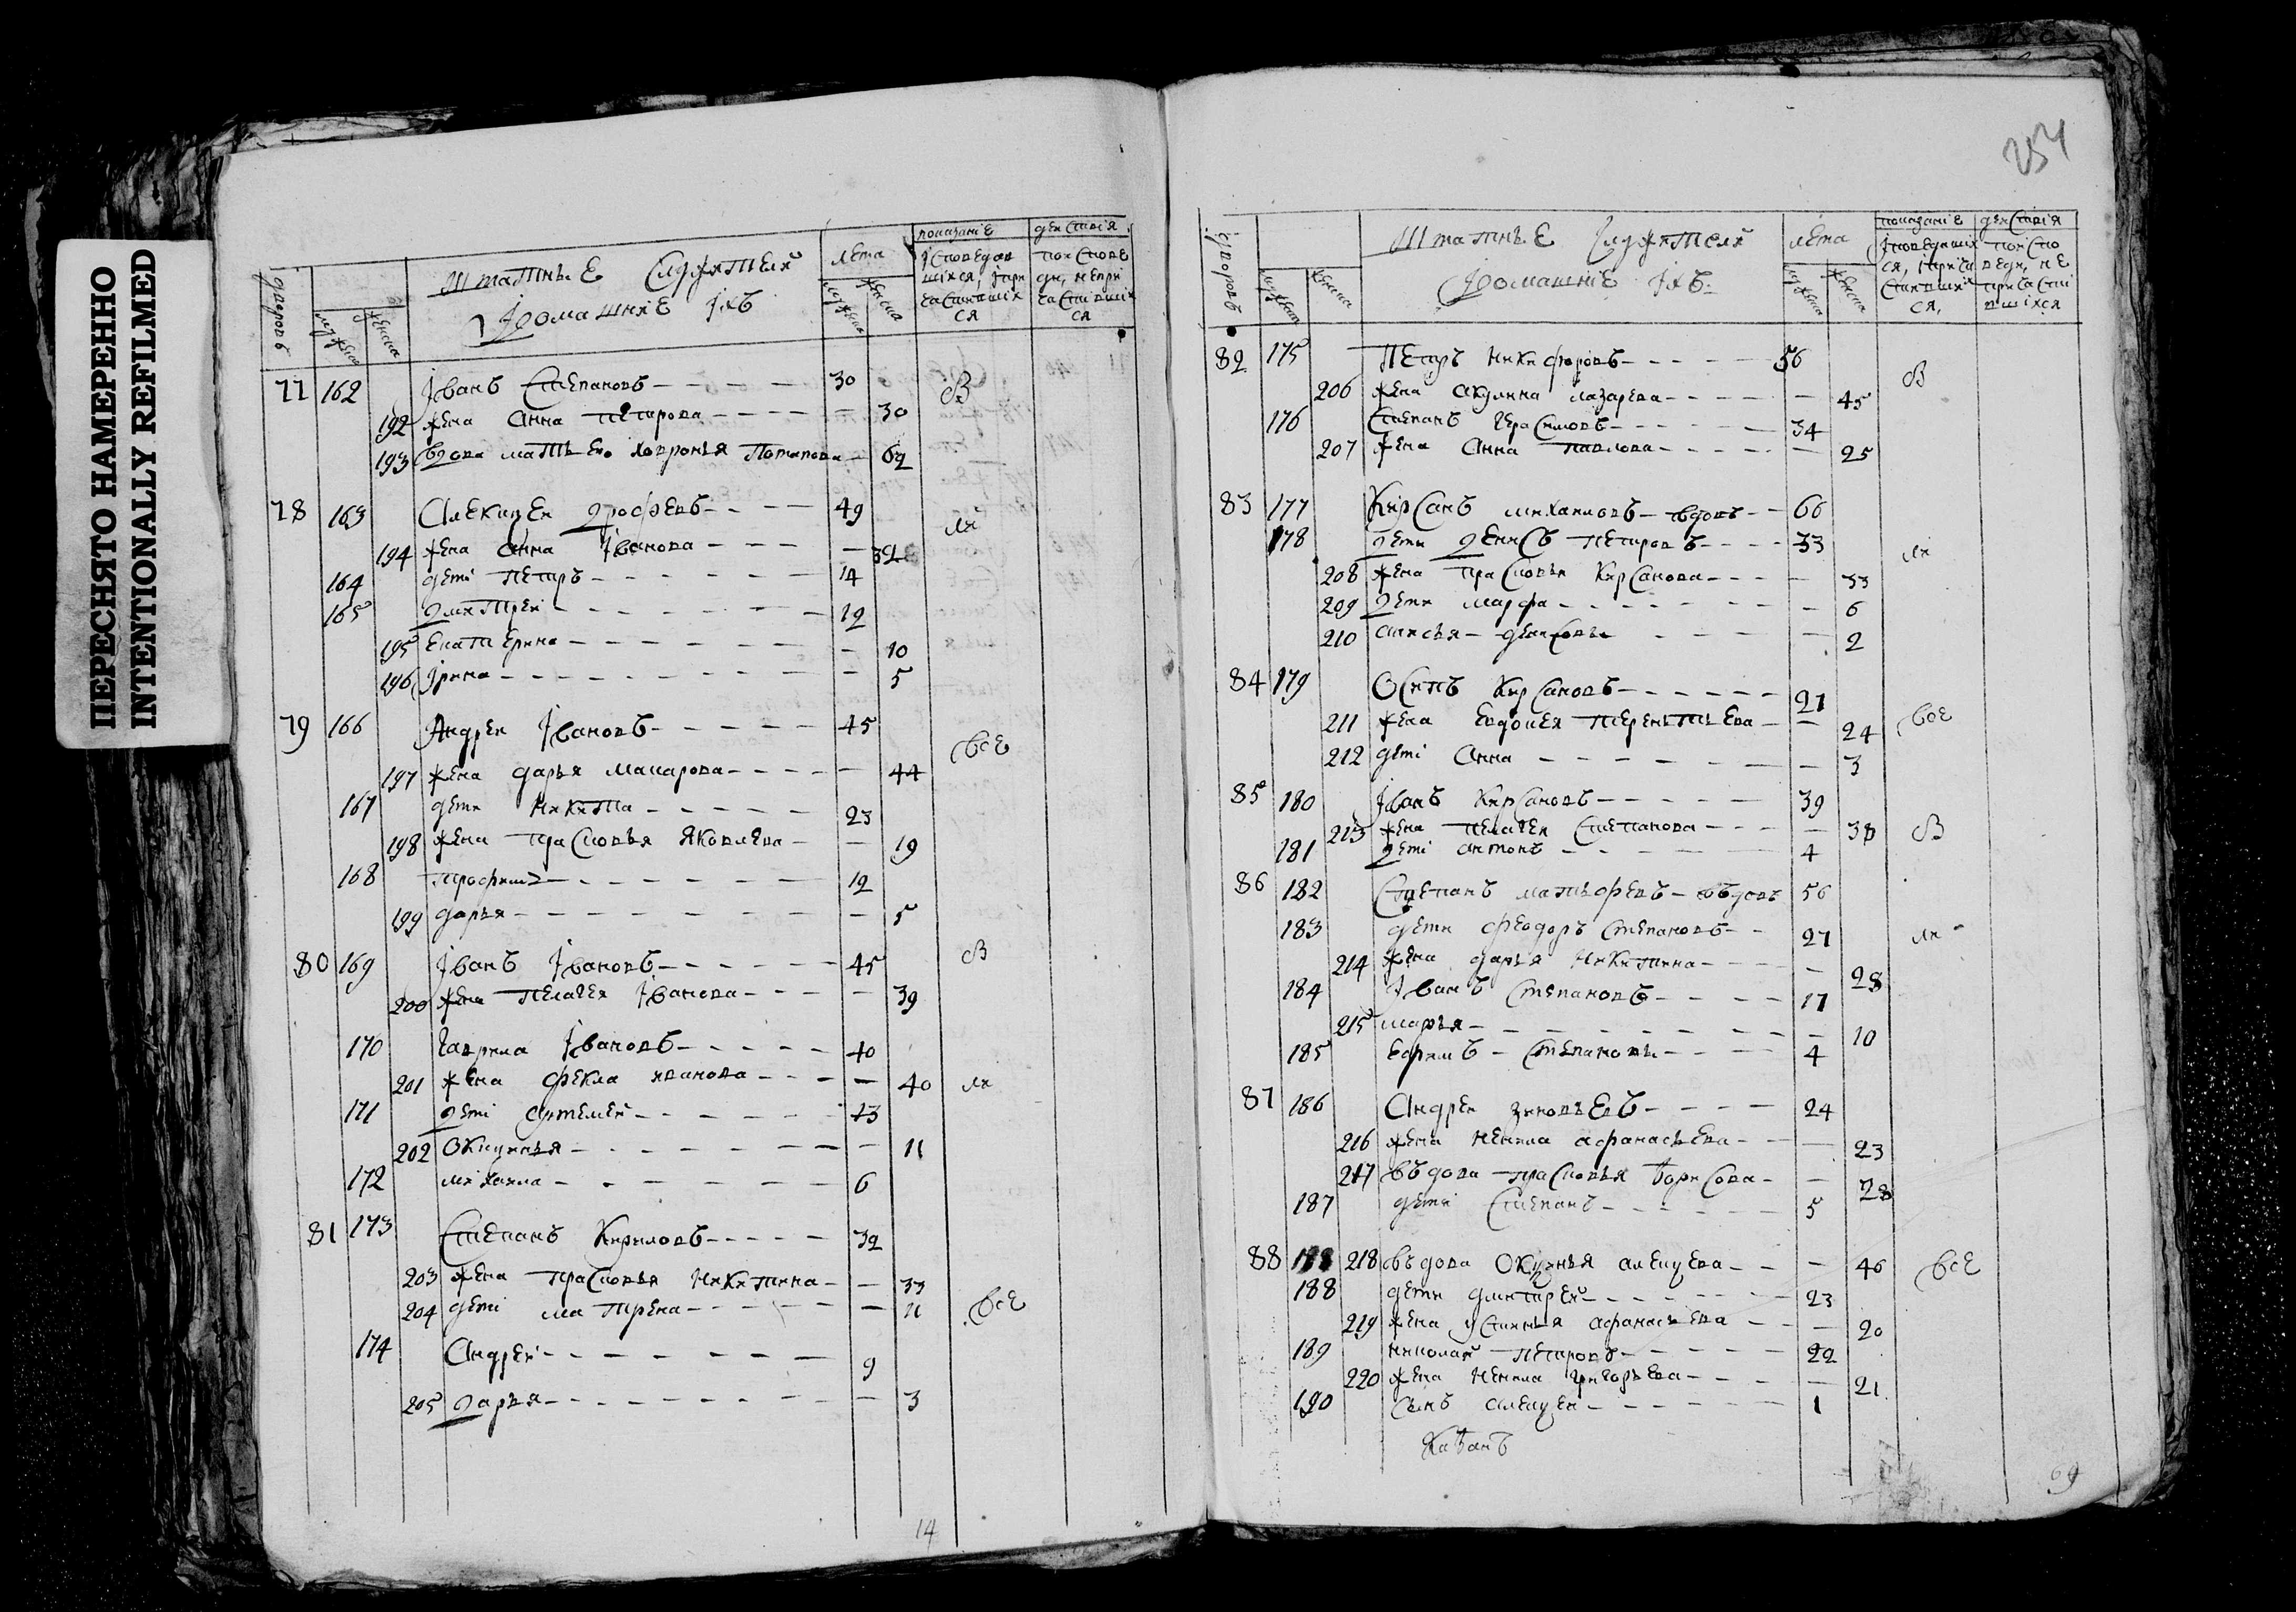 ПЕРЕСНЯТО НАМЕРЕННО
INTENTIONALLY REFILMED
дворовъ
мужеска
женска
Штатные служители
Iдомашние iхъ
лета
мужеска
женска
показание
Iсповедав
шихся, iпри
частивших
ся
действiя
поиспове
ди, непри
частивших
ся
77 162 Iванъ Степановъ 30
192 жена Анна Петрова 30
193 вдова мать ево Ховронья Потапова 62
78 163 Алекцеи 49
194 жена Анна Iванова
164 детi Петръ 14
165 Дмитреи 12
195 Екатерина 10
196 Iрина 5
79 166 Андреи Iвановъ 45
все
197 жена Дарья Макарова 44
167 дети Никита 23
198 жена Прасковья Яковлева 19
168 Трофимъ 12
199 Дарья 5
80 169 Iванъ Iвановъ 45
200 жена Пелагея Iванова 39
170 Гаврила Iвановъ 40
201 жена Фекла иванова 40
171 детi Артемей 13
202 Окцинья 11
172 Михаила 6
81 173 Степанъ Кириловъ 32
203 жена Прасковья Никитина 33
204 детi Матрена 11
все
174 Андрей 9
205 Дарья 3
14
254
дворовъ
мужеска
женска
Штатные служители
Iдомашнiе iхъ
лета
мужеска
женска
показанiе
Iсповедавших
ся, iприча
стившихся
действiя
поиспо
веди, не
причасти
вшихся
82 175 Петръ Никифоровъ 56
206 жена Акулина Лазарева 45
176 Степанъ Герасимовъ 34
207 жена Анна Павлова 25
83 177 Кирсанъ Михаиловъ вдовъ 66
178 дети Денисъ Петровъ 33
208 жена Прасковья Кирсанова 33
209 дети Марфа 6
210 2
84 179 Осипъ Кирсановъ 27
211 жена Евдокея Терентьева 24
все
212 детi Анна 3
85 180 Iванъ Кирсановъ 39
213 жена Пелагея Степанова 38
181 детi Антонъ 4
86 182 Степанъ Матьфевъ въдовъ 56
183 дети Феодоръ Степановъ 27
214 жена Дарья Никитина 28
184 Iванъ Степановъ 17
215 Марья 10
185 Ефимъ Степановъ 4
87 186 Андреи Зиновьевъ 24
216 жена Ненила Афанасьева 23
217 въдова Прасковья Борисова 28
187 дети Степанъ 5
88 218 въдова Окцинья Алекцева 46
все
188 дети Дмитрей 23
219 жена Устинья Афанасьева 20
189 Николай Петровъ 22
220 жена Ненила Григорьева 21
190 сынъ Алекцеи 1
69